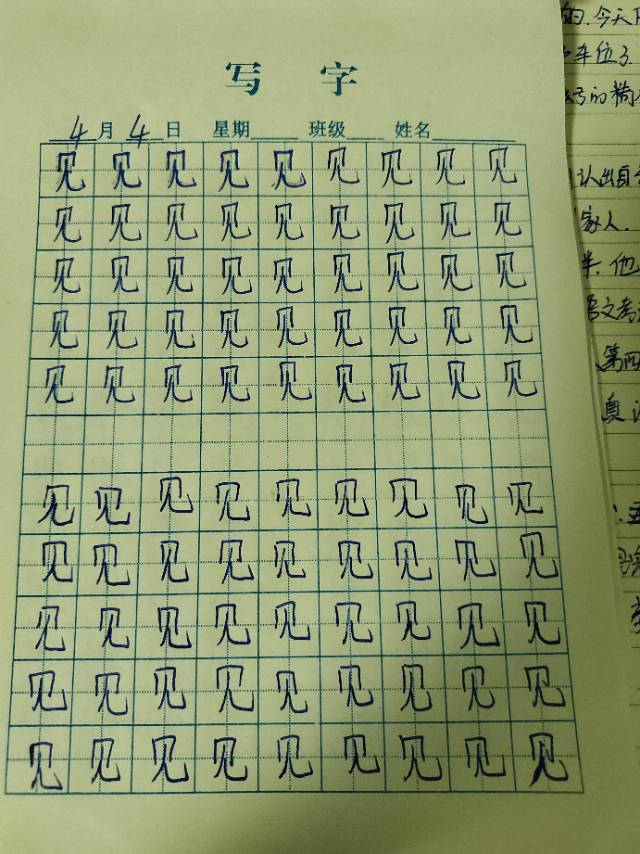 写 字
4月4日 星期 班级 姓名
见见见见见见见见见
见见见见见见见见见
见见见见见见见见见
见见见见见见见见见
见见见见见见见见见
见见见见见见见见见
见见见见见见见见见
见见见见见见见见见
见见见见见见见见见
见见见见见见见见见
今天
车位了
的
认出自
家人.
他
文考
第四